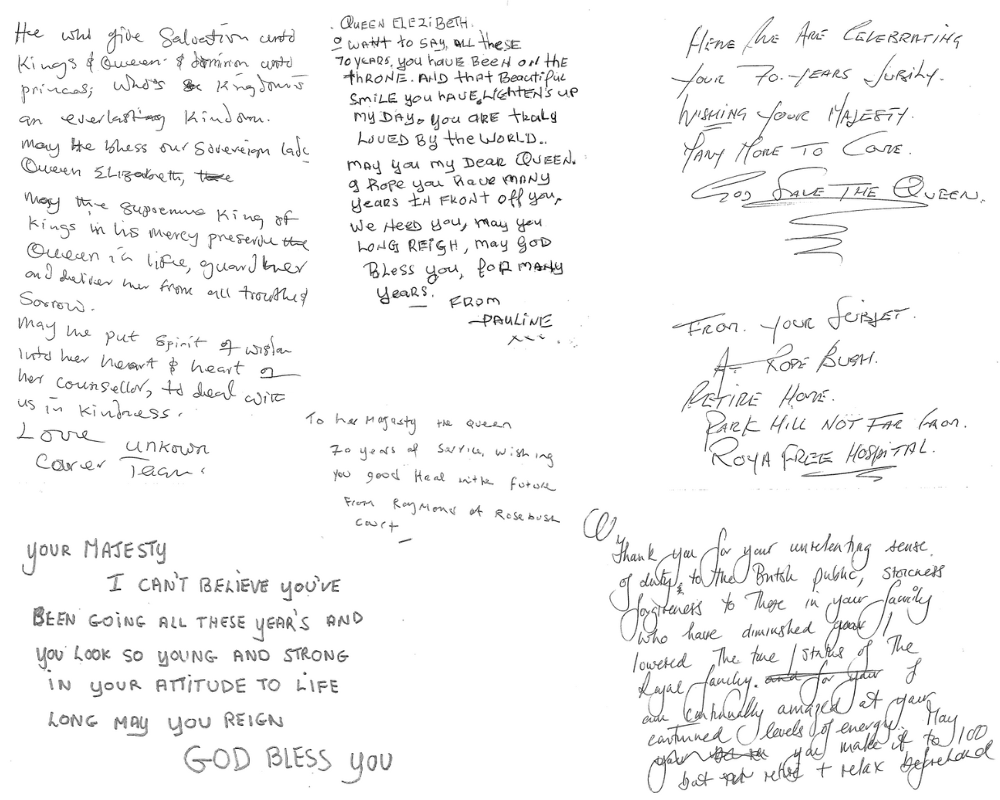 He who give Salvation unto
Kings & Queen & dominion unto
princes; who's Kingdom's
an everlasting Kindom.
may He bless our Sovereign lady
Queen Elizabeth,
May the supreme King of
Kings in his mercy preserve the
Queen in life, guard her
and deliver her from all trouble &
Sorrow.
May He put spirit of wisdom
into her heart & heart of
her counsellor, to deal with
us in kindness.
Love unkown
Carer Team.
QUEEN ELEZIBETH.
I WANT TO SAY, ALL these
70 YEARS, YOU HAVE BEEN ON the
thRONE. AND that BEAUTIFUL
SMILE YOU HAVE, LIGHTEN'S UP
MY DAY, YOU ARE TRULY
LOVED BY the WORLD..
MAY YOU MY DEAR QUEEN.
I HOPE YOU HAVE MANY
YEARS IN FRONT OFF YOU,
WE NEED YOU, MAY YOU
LONG REIGH, MAY GOD
BLESS YOU, FOR MANY
YEARS.
FROM
PAULINE
x x x .
To her Majesty the Queen
70 years of Service, wishing
you good Heal with future
From Raymond of Rosebush
Court
HERE WE ARE CELEBRATING
YOUR 70-YEARS JUBILY.
WISHING YOUR MAJESTY.
MANY MORE TO COME.
GOD SAVE THE QUEEN.
FROM. YOUR SUBJET.
A- ROSE BUSH.
RETIRE HOME.
PARK HILL NOT FAR FROM.
ROYA FREE HOSPITAL.
YOUR MAJESTY
I CAN'T BELIEVE YOU'VE
BEEN GOING ALL THESE YEAR'S AND
YOU LOOK SO YOUNG AND STRONG
IN YOUR ATTITUDE TO LIFE
LONG MAY YOU REIGN
GOD BLESS YOU
Thank you for your unrelenting sense
of duty to the British public, stoicness
forgiveness to those in your family
who have diminished /
lowered The true / status of The
Royal family. and for your I
am continually amazed at your
continued levels of energy. May
you make it to 100
but retire + relax beforehand